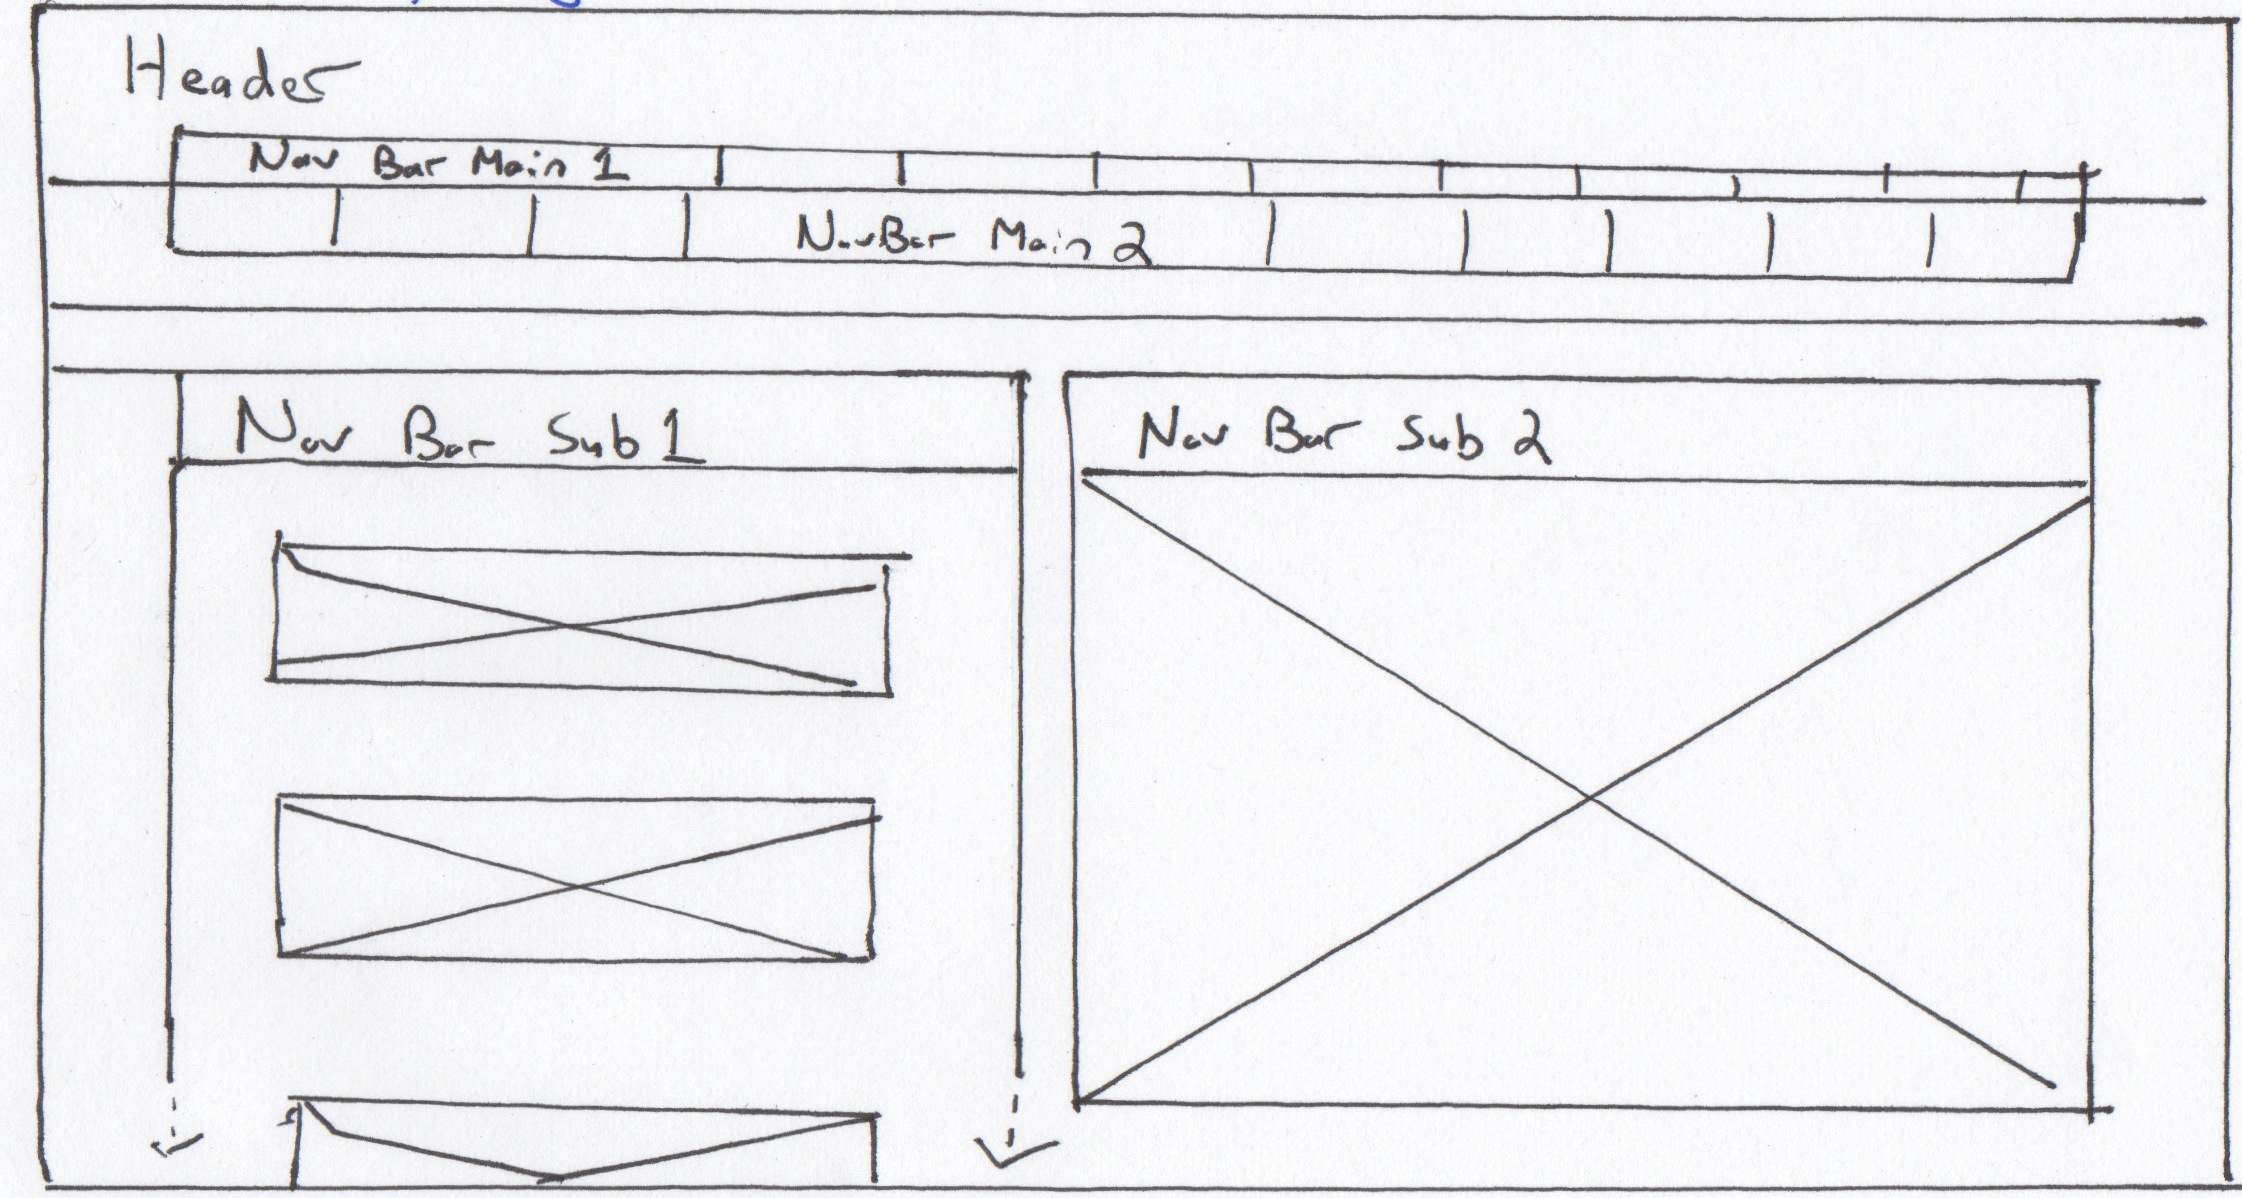 Header
Nav Bar Main 1
NavBar Main 2
Nav Bar Sub 1
Nav Bar Sub 2